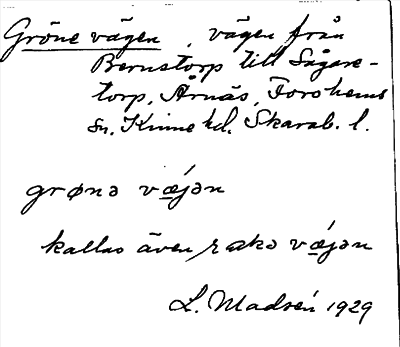 Gröne vägen, vägen från
Bernstorp till Sågare-
torp, Årnäs, Forshems
sn. Kinne hd. Skarab. l.
grønə væjən
kallas även rakə væjən
L. Madsén 1929